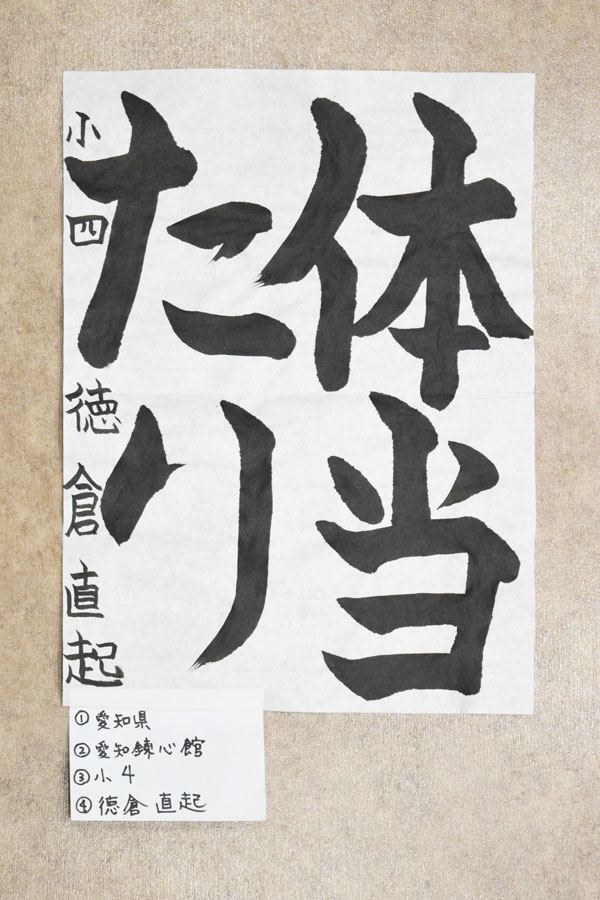 体当
たり
小四 徳倉直起
①愛知県
②愛知錬心館
③小4
④徳倉直起